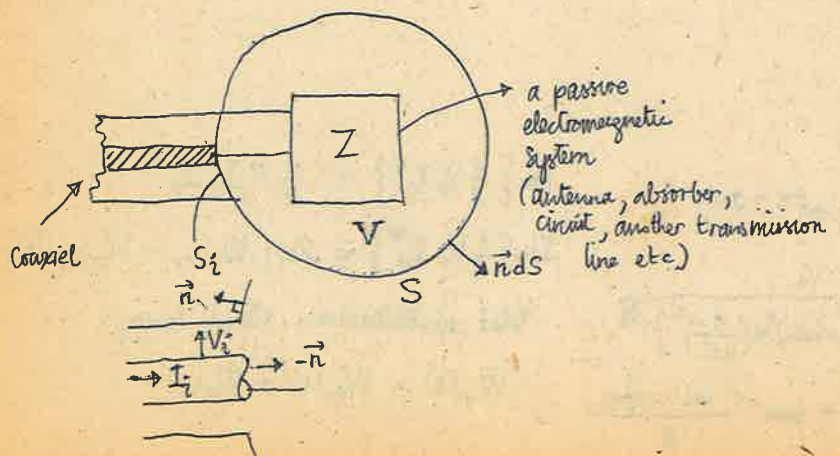 a passive
electromagnetic
system
(antenna, absorber,
circuit, another transmission
line etc.)
Z
V
Coaxiel
S_i
S
n⃗ dS
n⃗
V_i
I_i
-n⃗